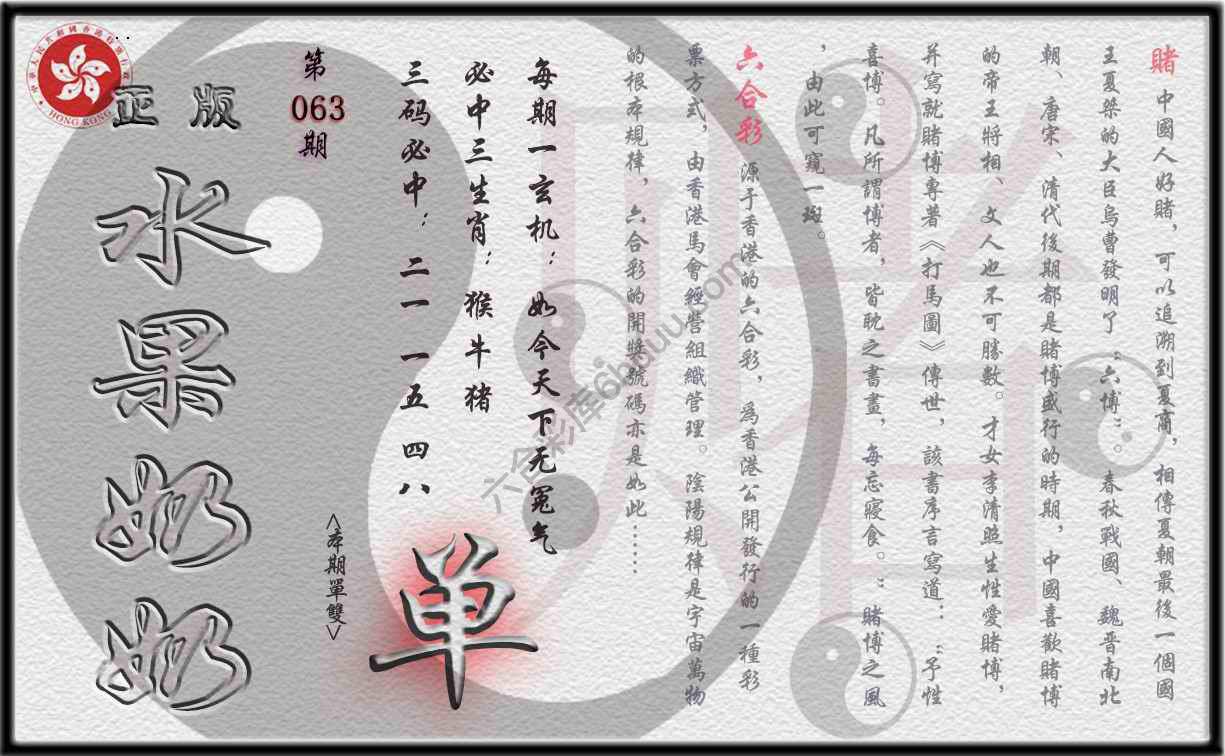 賭 中國人好賭，可以追溯到夏商，相傳夏朝最後一個國
王夏桀的大臣烏曹發明了“六博”。春秋戰國、魏晋南北
朝、唐宋、清代後期都是賭博盛行的時期，中國喜歡賭博
的帝王將相、文人也不可勝數。才女李清照生性愛賭博，
并寫就賭博專著《打馬圖》傳世，該書序言寫道：：“予性
喜博。凡所謂博者，皆耽之書畫，每忘寢食。”賭博之風
，由此可窺一斑。
六合彩 源于香港的六合彩，爲香港公開發行的一種彩
票方式，由香港馬會經營組織管理。陰陽規律是宇宙萬物
的根本規律，六合彩的開獎號碼亦是如此……
每期一玄机：如今天下无冤气
必中三生肖：猴牛猪
三码必中：二一 一五 四八
单
<本期單雙>
第
063
期
正版
水果奶奶
賭
六合彩库6hduu.com
HONG KONG